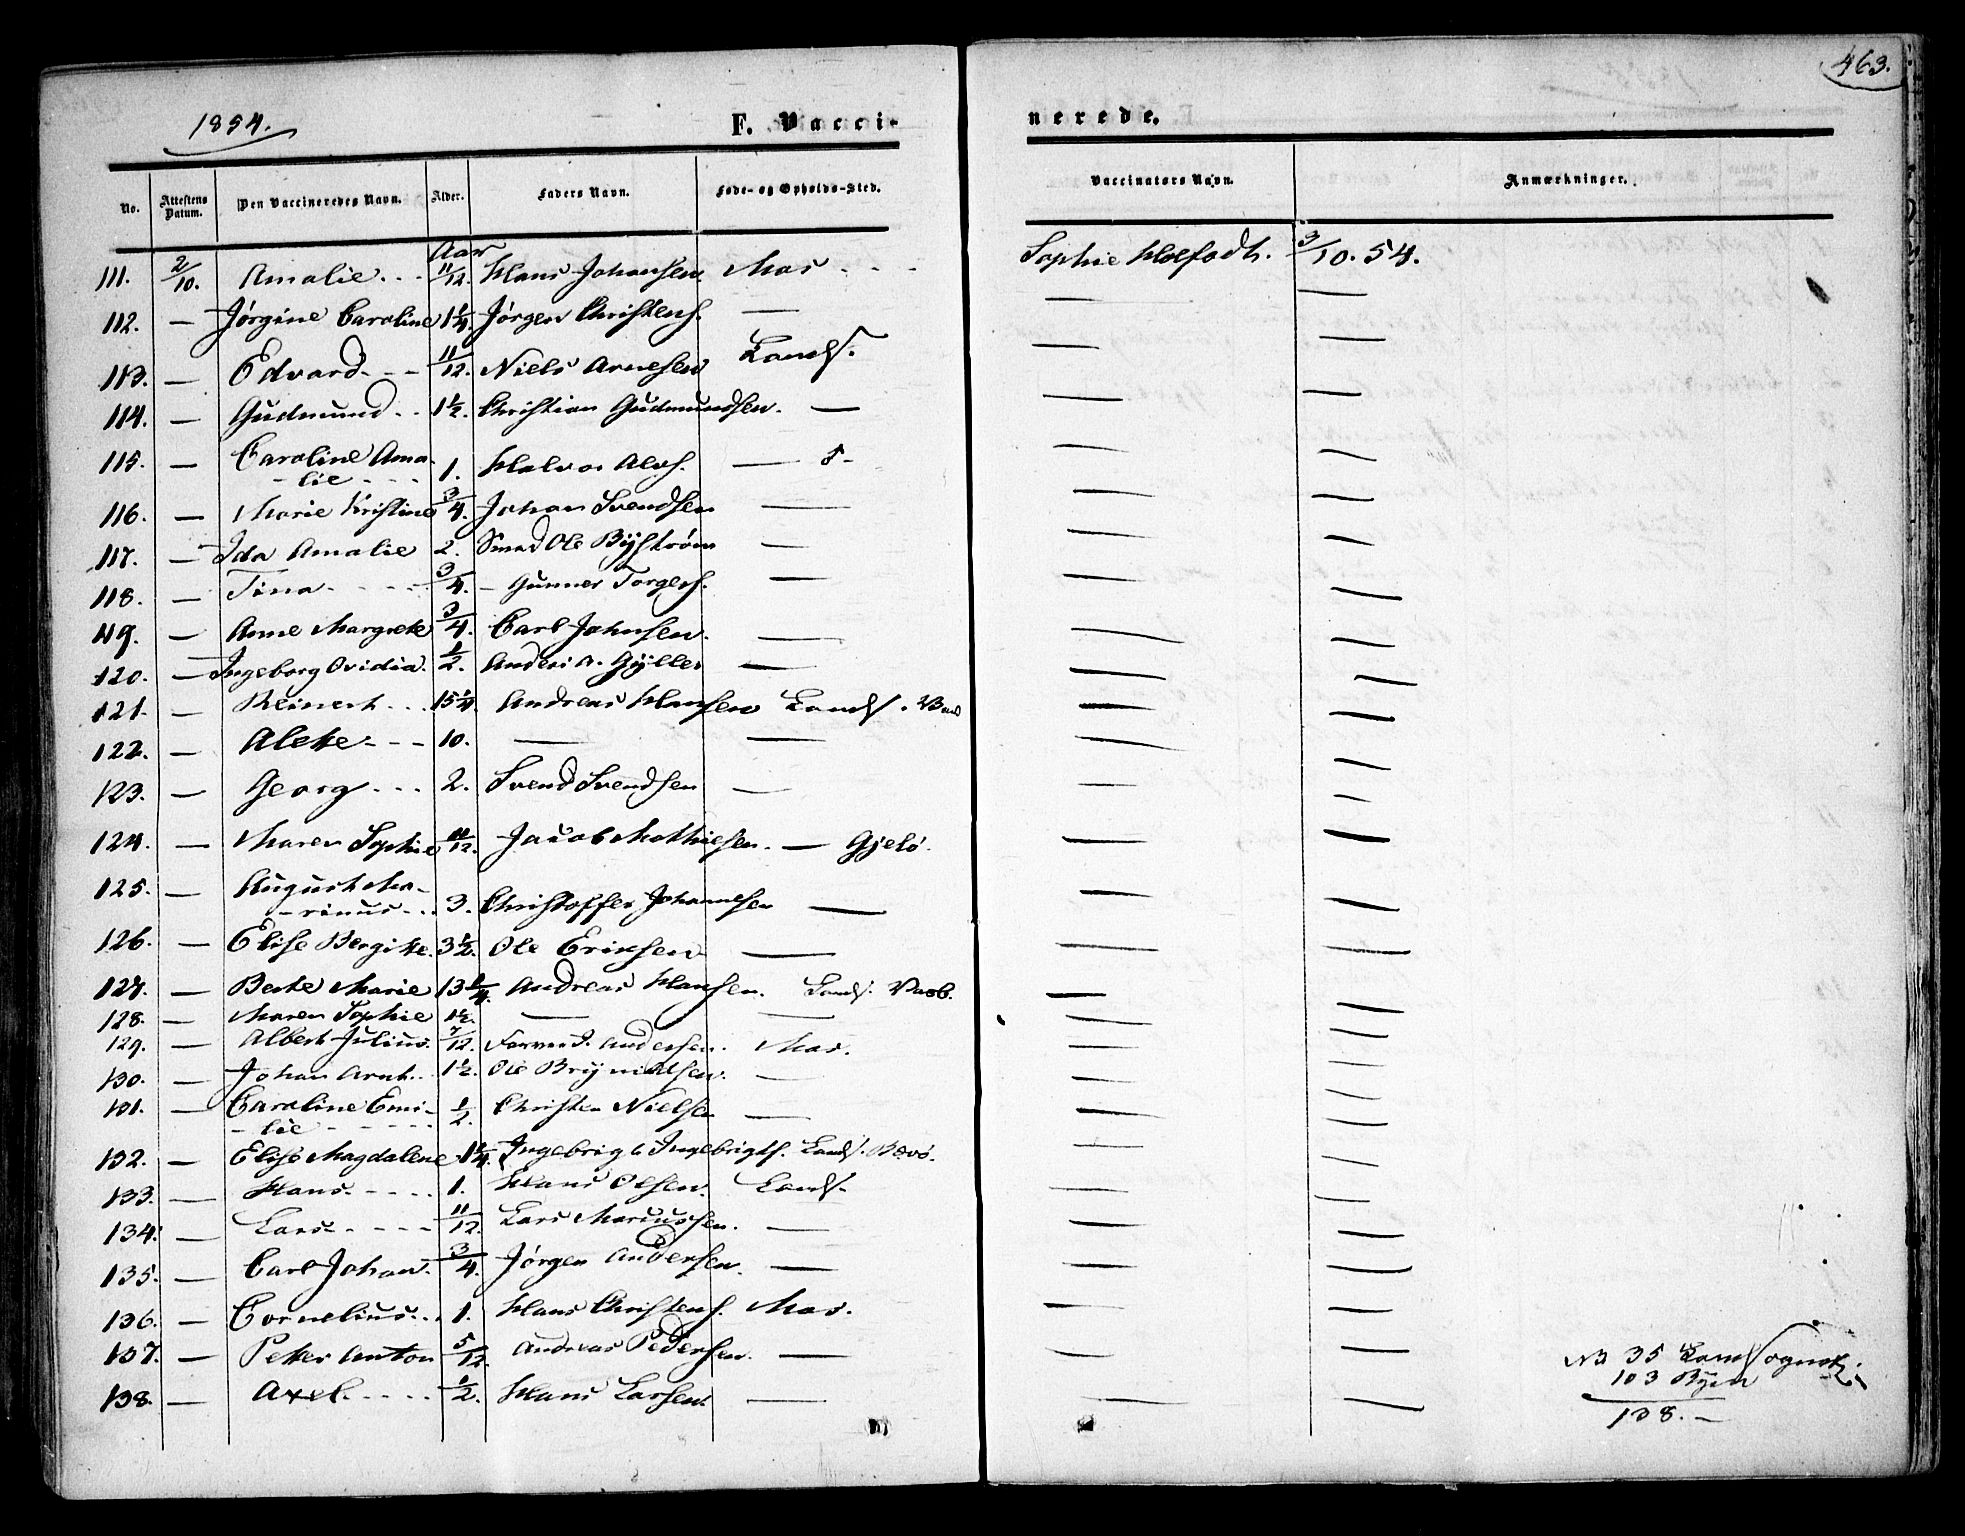 463.
1854.
F. Vacci-
nerede.
No.
Attestens Datum.
Den Vaccineredes Navn.
Alder.
Faders Navn.
Føde- og Opholds-Sted.
Vaccinators Navn.
Anmærkninger.
Aar
111. 2/10. Amalie. - - 11/12. Hans Johansen. Mos - - - Sophie 3/10. 54.
112. — Jørgine Caroline 1 1/4. Jørgen Christens. — — —
113. — Edvard. - - 11/12. Niels Arnesen Lands. — —
114. — Gudmund - - 1 1/2. Christian Gudmundsen. — — —
115. — Caroline Ama-
- lie - - - 1. Halvor — — —
116. — Marie Kristine 3/4. Johan Svendsen — — —
117. — Ida Amalie 2. Ole Byström — — —
118. — Tina - - - - 3/4. - Gunner Torgers. — — —
119. — Anne Margrete 3/4. Carl Johnsen. — — —
120. — Ingeborg Ovidia. 1/2. Gyller — — —
121. — Reinert - - - 15 1/4. Andreas Hansen Lands. — —
122. — Alette - - - 10. — — — —
123. — Georg - - - 2. Svend Svendsen — — —
124. — Maren Sophie 11/12. Jacob Mathiesen. — Gjelø. — —
125. — August Ma-
- rinus - - 3. Christoffer Johannesen — — —
126. — Elise Bergitte. 3 1/2. Ole Eriksen — — —
127. — Berte Marie 13 1/4. Andreas Hansen. Lands. — —
128. — Maren Sophie 1 1/2. — — — —
129. — Albert Julius. 7/12. Andersen. Mos. — —
130. — Johan Arnt. 1 1/2. Ole Brynildsen. — — —
131. — Caroline Emi-
- lie - - - - 1/2. Christen Nielsen — — —
132. — Elise Magdalene 1 1/4. Ingebrigt Ingebrigts. Lands. — —
133. — Hans. - - - - 1. Hans Olsen. Lands. — —
134. — Lars - - - - 11/12. Lars Mariussen. — — —
135. — Carl Johan. 3/4. Jørgen Andersen. — — —
136. — Cornelius - - 1. Hans Christens. Mos. — —
137. — Peter Anton 5/12. Andreas Pedersen. — — —
138. — Axel. - - - - 1/2. Hans Larsen. — — —
NB 35 Landsognet.
103 Byen
138. —